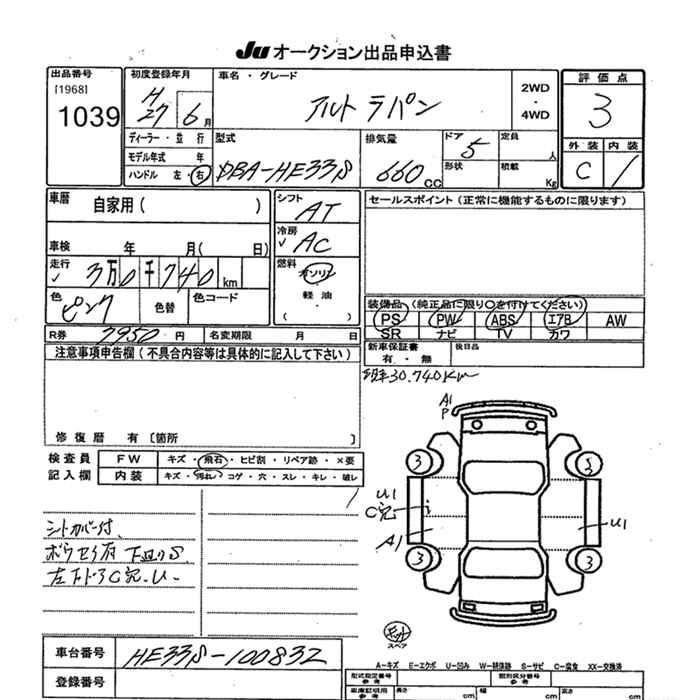 Ju オークション出品申込書
出品番号
[1968]
1039
初度登録年月
H
27 6 月
車名・グレード
アルト ラパン
2WD
・
4WD
評価点
3
ディーラー・並 行
モデル年式 年
ハンドル 左・右
型式
DBA-HE33S
排気量
660 CC
ドア 5
形状
定員 人
積載 Kg
外装 内装
C
車歴
自家用( )
車検 年 月( 日)
走行 3万0千740 km
シフト AT
冷房 AC
燃料
ガソリン
軽油
・
( )
セールスポイント(正常に機能するものに限ります)
色 ピンク
色替
色コード
装備品(純正品に限り○を付けてください)
PS PW ABS エアB AW
SR ナビ TV カワ
R券 7950 円
名変期限 月 日
新車保証書
有・無
後日品
注意事項申告欄(不具合内容等は具体的に記入して下さい)
30.740Km
修復歴 有 [箇所 ]
検査員
記入欄
FW
キズ・飛石・ヒビ割・リペア跡・×要
内装
キズ・汚れ・コゲ・穴・スレ・キレ・破レ
A1
P
3 3
U1
A1
U1
3 3
シートカバー付
スペア
車台番号 HE33S-100832
登録番号
A−キズ E−エクボ U−凹み W−補修跡 S−サビ C−腐食 XX−交換済
型式指定番号
参考
類別区分番号
参考
車庫証明用
参考
長さ cm
幅 cm
高さ cm